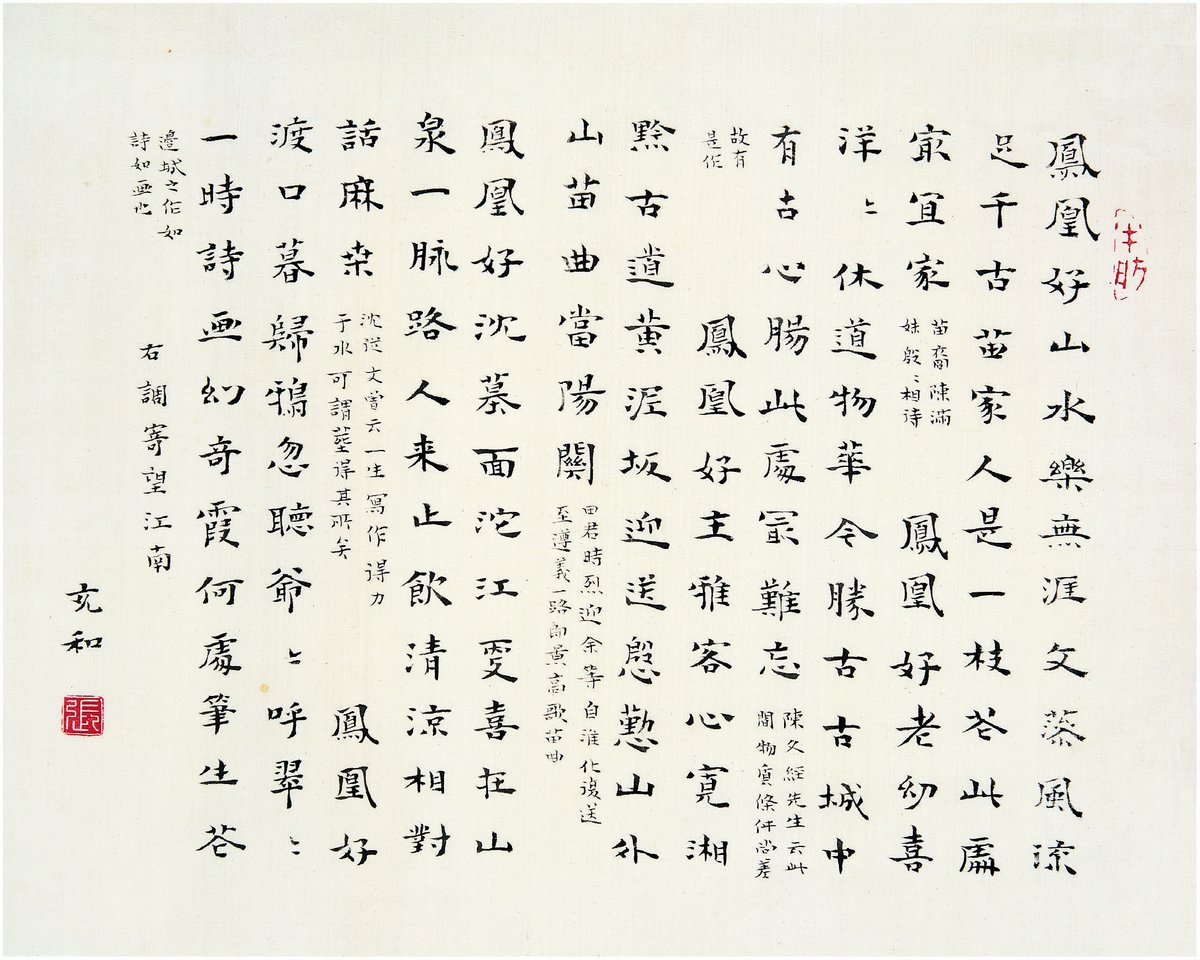 鳳凰好山水樂無涯文藻風流
足千古苗家人是一枝花此處
最宜家
苗裔陳滿
妹殷〻相待
鳳凰好老幼喜
洋〻休道物華今勝古古城中
有古心腸此處最難忘
陳久經先生云此
間物質條件尚差
故有
是作
鳳凰好主雅客心寬湘
黔古道黃泥坂迎送慇懃山外
山苗曲當陽關
田君時烈迎余等自淮化後送
至遵義一路向黃高歌苗曲
鳳凰好沈墓面沱江更喜在山
泉一脉路人来止飲清涼相對
話麻桒
沈從文曾云一生寫作得力
于水可謂塟得其所矣
鳳凰好
渡口暮歸鴉忽聽爺〻呼翠〻
一時詩画幻奇霞何處筆生花
邊城之作如
詩如画也
右調寄望江南
充和
張